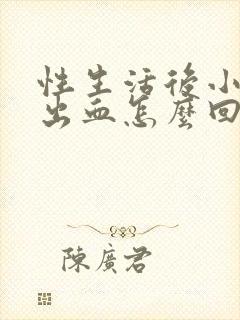 性生活後小
出血怎麼回
陳廣君